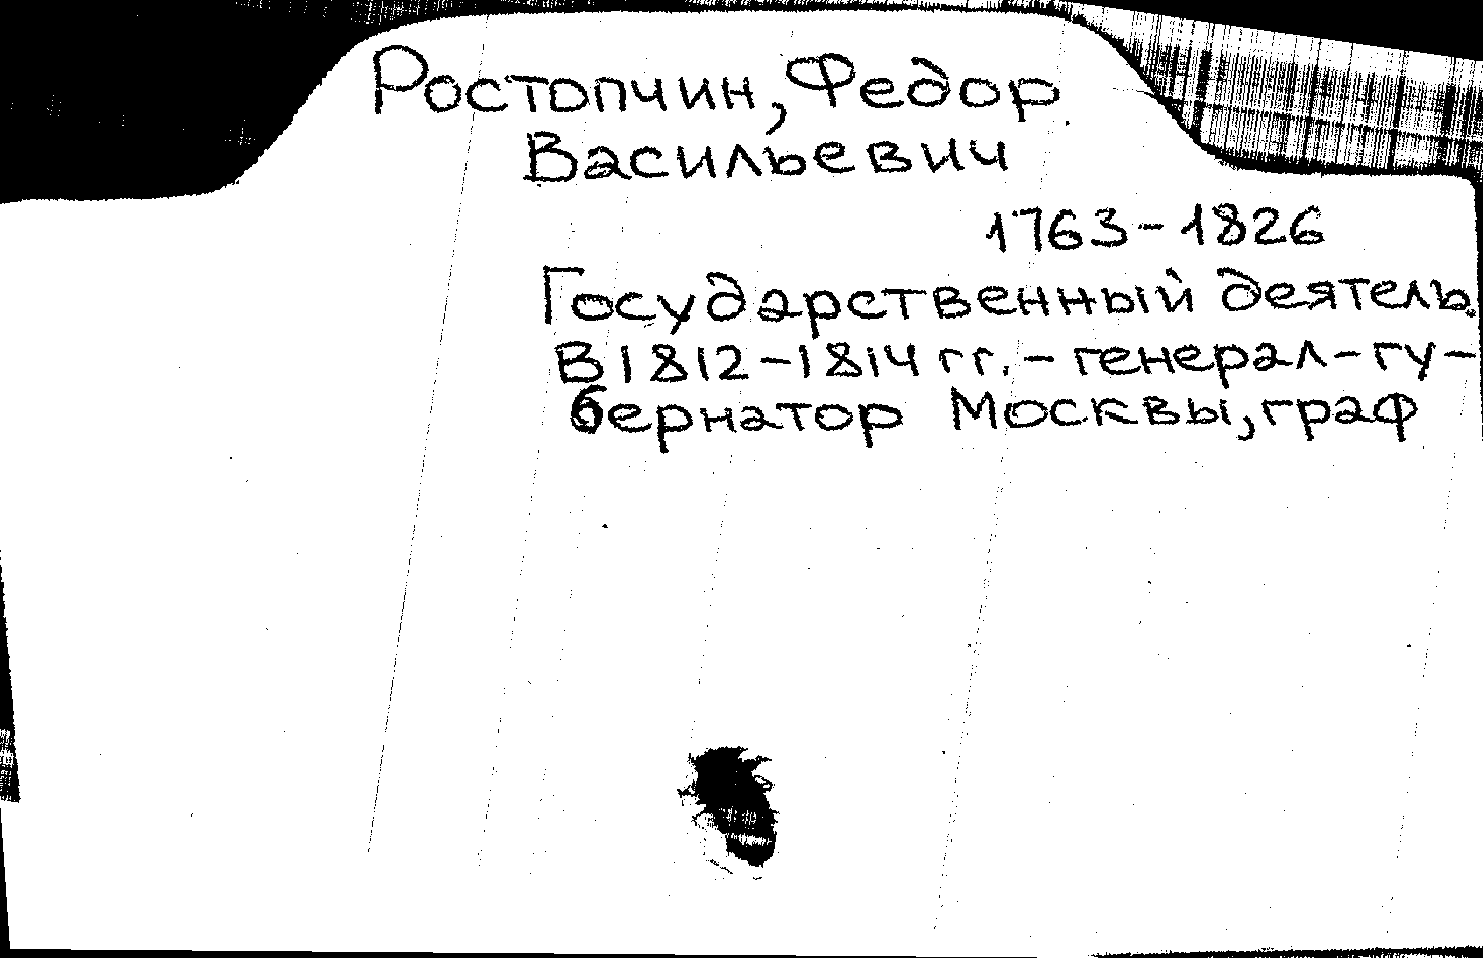 Ростопчин, Федор
Васильевич
1763-1826
Государственный деятель.
В 1812-1814 гг. - генерал-гу-
бернатор Москвы, граф